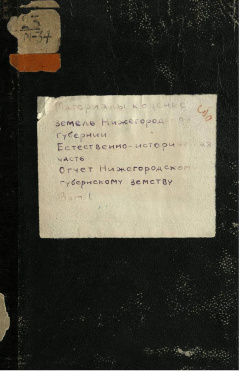 Материалы к оценке
земель Нижегородской
губернии
Естественно-историческая
часть
Отчет Нижегородскому
губернскому земству